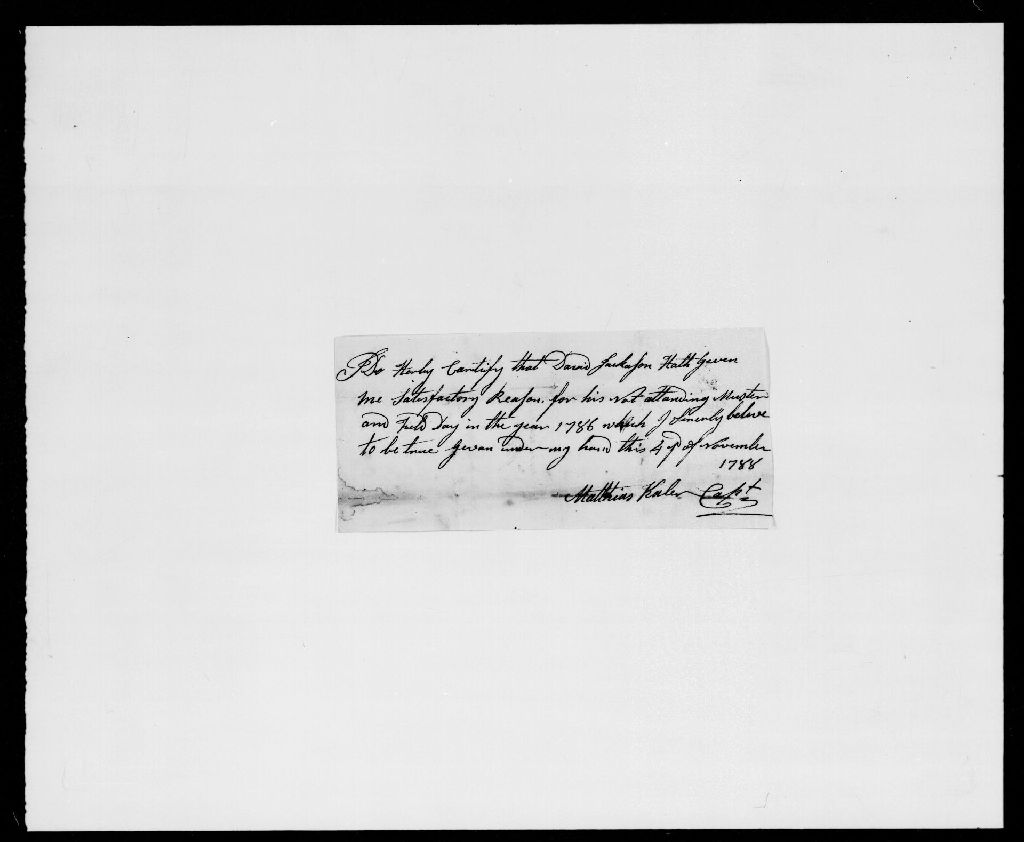 I Do Herby Cartify that David Jackason Hath Given
me Satesfactory Reason. for his not attanding Muster
and Field Day in the year 1786 which I Sincerly beleve
to be true Gevan under my hand this 4 of November
1788
Matthias Capt